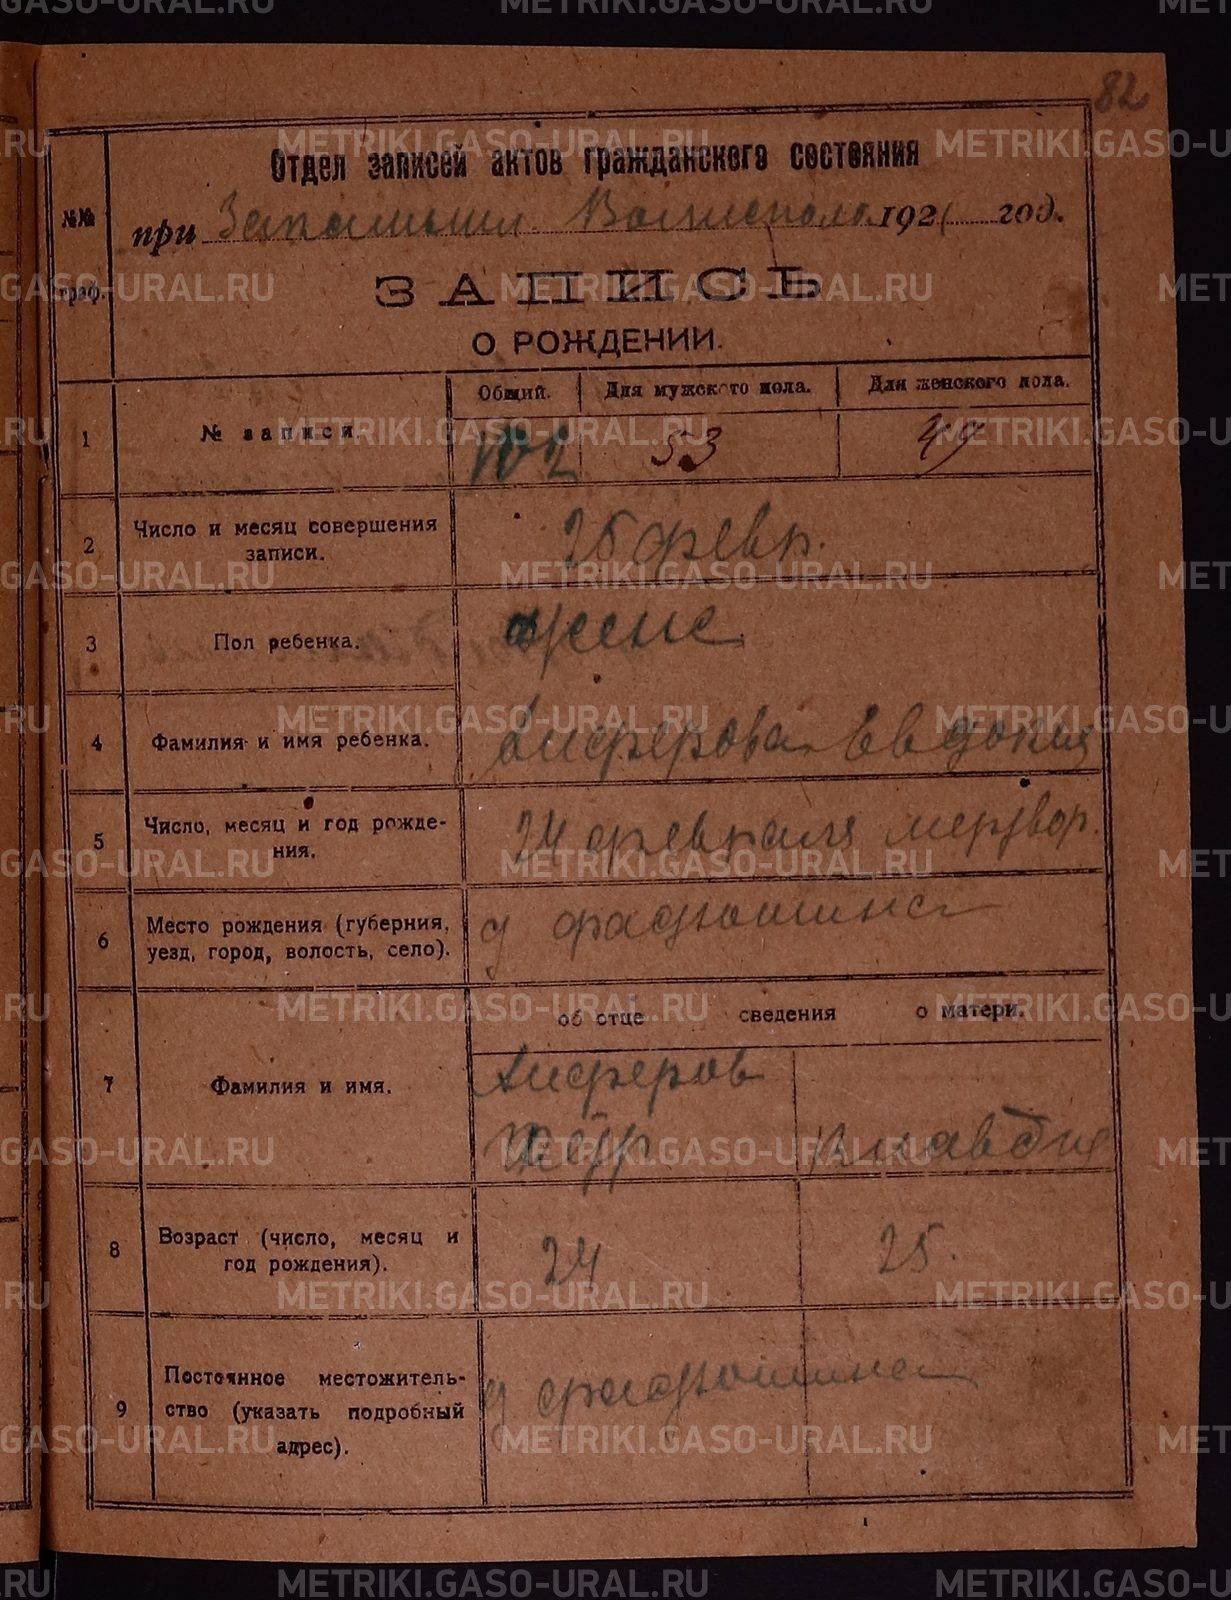 82
Отдел записей актов гражданского состояния
№№ граф.
при Волисполк. 1921 год.
ЗАПИСЬ
О РОЖДЕНИИ.
Общий. Для мужского пола. Для женского пола.
1 № записи. 102 53 49
2 Число и месяц совершения
записи. 25 февр.
3 Пол ребенка. женс
4 Фамилия и имя ребенка. Алферова Евдокия
5 Число, месяц и год рожде-
ния. 24 февраля мертвор.
6 Место рождения (губерния,
уезд, город, волость, село). д
об отце сведения о матери.
7 Фамилия и имя. Алферов
Клавдия
8 Возраст (число, месяц и
год рождения). 24 25.
9 Постоянное местожитель-
ство (указать подробный
адрес). д
METRIKI.GASO-URAL.RU